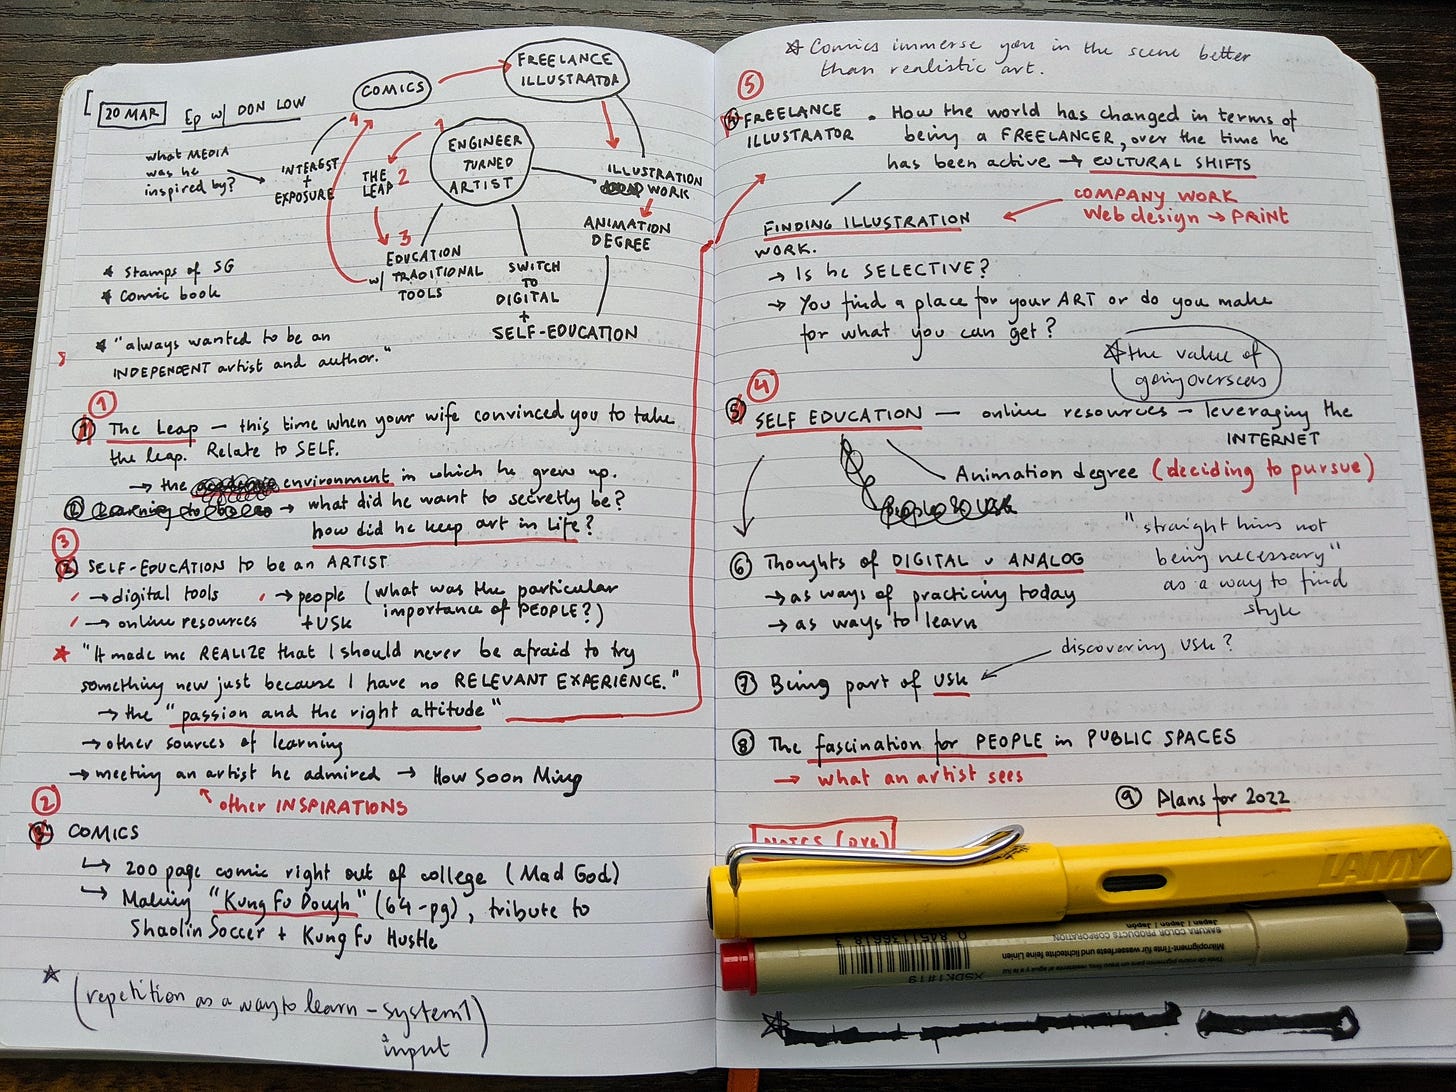 20 MAR
Ep w/ DON LOW
COMICS
FREELANCE
ILLUSTRATOR
what MEDIA
was he
inspired by?
INTEREST
+
EXPOSURE
4
1
THE
LEAP 2
ENGINEER
TURNED
ARTIST
ILLUSTRATION
WORK
ANIMATION
DEGREE
3
EDUCATION
w/ TRADITIONAL
TOOLS
SWITCH
TO
DIGITAL
+
SELF-EDUCATION
* Stamps of SG
* Comic book
* "always wanted to be an
INDEPENDENT artist and author."
1
1 The Leap — this time when your wife convinced you to take
the leap. Relate to SELF.
→ the environment in which he grew up.
→ what did he want to secretly be?
how did he keep art in life?
3
2 SELF-EDUCATION to be an ARTIST
→ digital tools → people (what was the particular
→ online resources + USk importance of PEOPLE?)
* "It made me REALIZE that I should never be afraid to try
something new just because I have no RELEVANT EXPERIENCE."
→ the "passion and the right attitude"
→ other sources of learning
→ meeting an artist he admired → How Soon Ming
other INSPIRATIONS
2
3 COMICS
↳ 200 page comic right out of college (Mad God)
↳ Making "Kung Fu Dough" (64-pg), tribute to
Shaolin Soccer + Kung Fu Hustle
* (repetition as a way to learn - system 1
input)
* Comics immerse you in the scene better
than realistic art.
5
4 FREELANCE
ILLUSTRATOR
• How the world has changed in terms of
being a FREELANCER, over the time he
has been active → CULTURAL SHIFTS
COMPANY WORK
Web design → PRINT
FINDING ILLUSTRATION
WORK.
→ Is he SELECTIVE?
→ You find a place for your ART or do you make
for what you can get?
* the value of
going overseas
4
5 SELF EDUCATION — online resources — leveraging the
INTERNET
Animation degree (deciding to pursue)
"straight lines not
being necessary"
as a way to find
style
6 Thoughts of DIGITAL v ANALOG
→ as ways of practicing today
→ as ways to learn
discovering USk?
7 Being part of USk
8 The fascination for PEOPLE in PUBLIC SPACES
→ what an artist sees
9 Plans for 2022
LAMY
SAKURA COLOR PRODUCTS CORPORATION
Japan / Japon
Mikropigment-Tinte für wasserfeste und lichtechte feine Linien
XSDK1#19